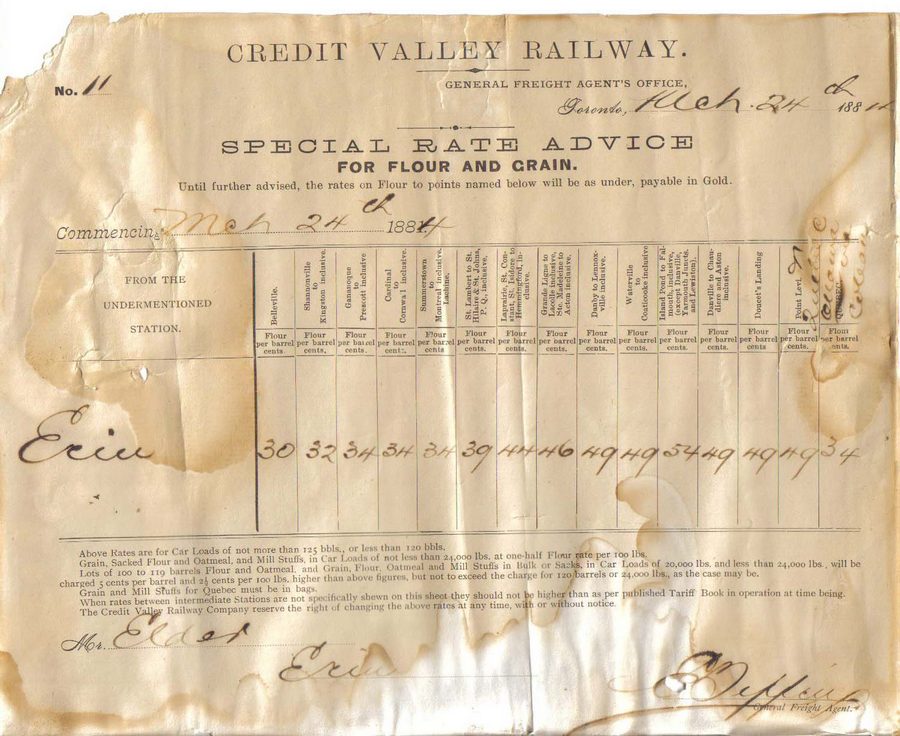 CREDIT VALLEY RAILWAY.
No. 11
GENERAL FREIGHT AGENT'S OFFICE,
Toronto, Mch. 24th 188
SPECIAL RATE ADVICE
FOR FLOUR AND GRAIN.
Until further advised, the rates on Flour to points named below will be as under, payable in Gold.
Commencing Mch 24th 1884
FROM THE UNDERMENTIONED STATION.
Belleville.
Shannonville to Kingston inclusive.
Gananoque to Prescott inclusive.
Cardinal to Cornwall inclusive.
Summerstown to Montreal inclusive, Lachine.
St. Lambert to St. Hilaire & St. Johns, P. Q., inclusive.
Laprairie, St. Constant, St. Isidore to Hemmingford, inclusive.
Grande Ligne to Lacolle inclusive, Ste. Madeleine to Acton inclusive.
Danby to Lennoxville inclusive.
Waterville to Coaticooke inclusive
Island Pond to Falmouth, inclusive, (except Danville, Yarmouth Junct. and Lewiston)
Danville to Chaudiere and Aston inclusive.
Doucet's Landing
Point Levi.
Flour per barrel cents. Flour per barrel cents. Flour per barrel cents. Flour per barrel cents. Flour per barrel cents. Flour per barrel cents. Flour per barrel cents. Flour per barrel cents. Flour per barrel cents. Flour per barrel cents. Flour per barrel cents. Flour per barrel cents. Flour per barrel cents. Flour per barrel cents. Flour per barrel cents.
Erin 30 32 34 34 34 39 44 46 49 49 54 49 49 49 34
Above Rates are for Car Loads of not more than 125 bbls., or less than 120 bbls.
Grain, Sacked Flour and Oatmeal, and Mill Stuffs, in Car Loads of not less than 24,000 lbs. at one-half Flour rate per 100 lbs.
Lots of 100 to 119 barrels Flour and Oatmeal, and Grain, Flour, Oatmeal and Mill Stuffs in Bulk or Sacks, in Car Loads of 20,000 lbs. and less than 24,000 lbs., will be
charged 5 cents per barrel and 2½ cents per 100 lbs. higher than above figures, but not to exceed the charge for 120 barrels or 24,000 lbs., as the case may be.
Grain and Mill Stuffs for Quebec must be in bags.
When rates between intermediate Stations are not specifically shewn on this sheet they should not be higher than as per published Tariff Book in operation at time being.
The Credit Valley Railway Company reserve the right of changing the above rates at any time, with or without notice.
Mr. Elder
Erin
General Freight Agent.